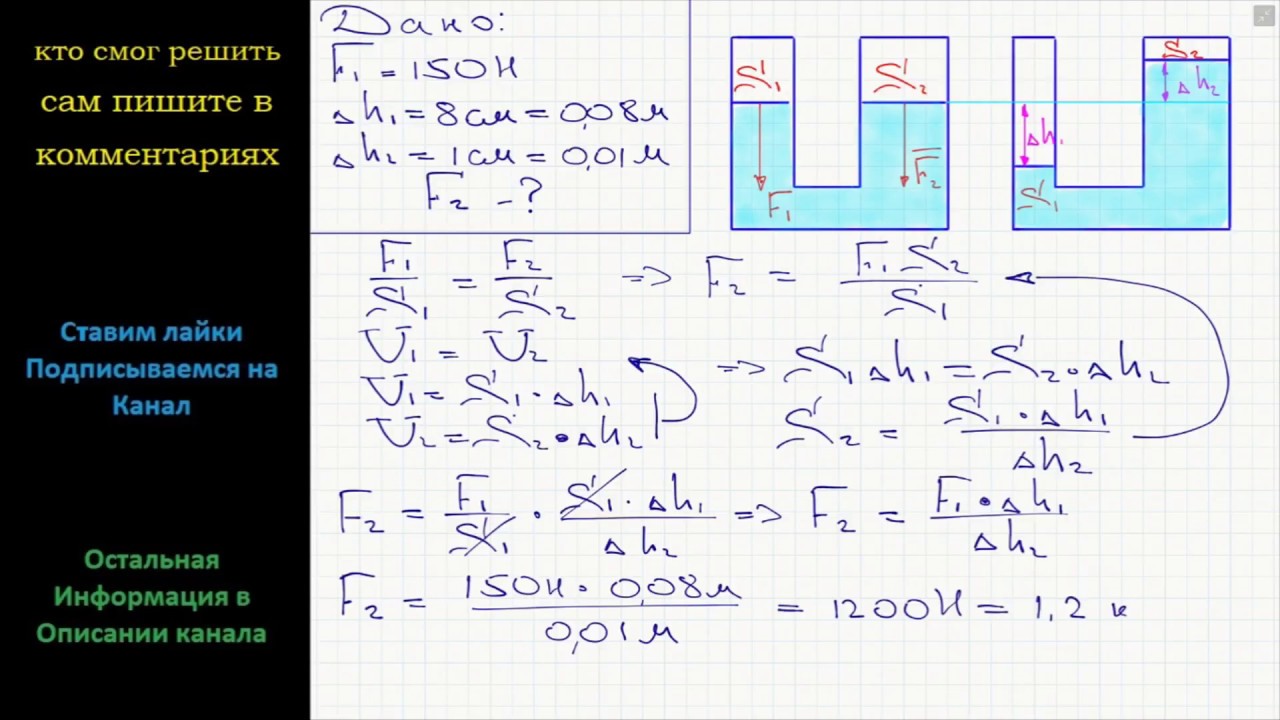 кто смог решить
сам пишите в
комментариях
Ставим лайки
Подписываемся на
Канал
Остальная
Информация в
Описании канала
Дано:
F₁ = 150Н
Δh₁ = 8см = 0,08м
Δh₂ = 1см = 0,01м
F₂ - ?
S₁ S₂ F₁ F₂
S₂ Δh₂ Δh₁ S₁
F₁/S₁ = F₂/S₂ => F₂ = F₁ S₂/S₁
V₁ = V₂ => S₁Δh₁ = S₂·Δh₂
V₁ = S₁·Δh₁
V₂ = S₂·Δh₂ S₂ = S₁·Δh₁/Δh₂
F₂ = F₁/S₁ · S₁·Δh₁/Δh₂ => F₂ = F₁·Δh₁/Δh₂
F₂ = 150Н·0,08м/0,01м = 1200Н = 1,2 к